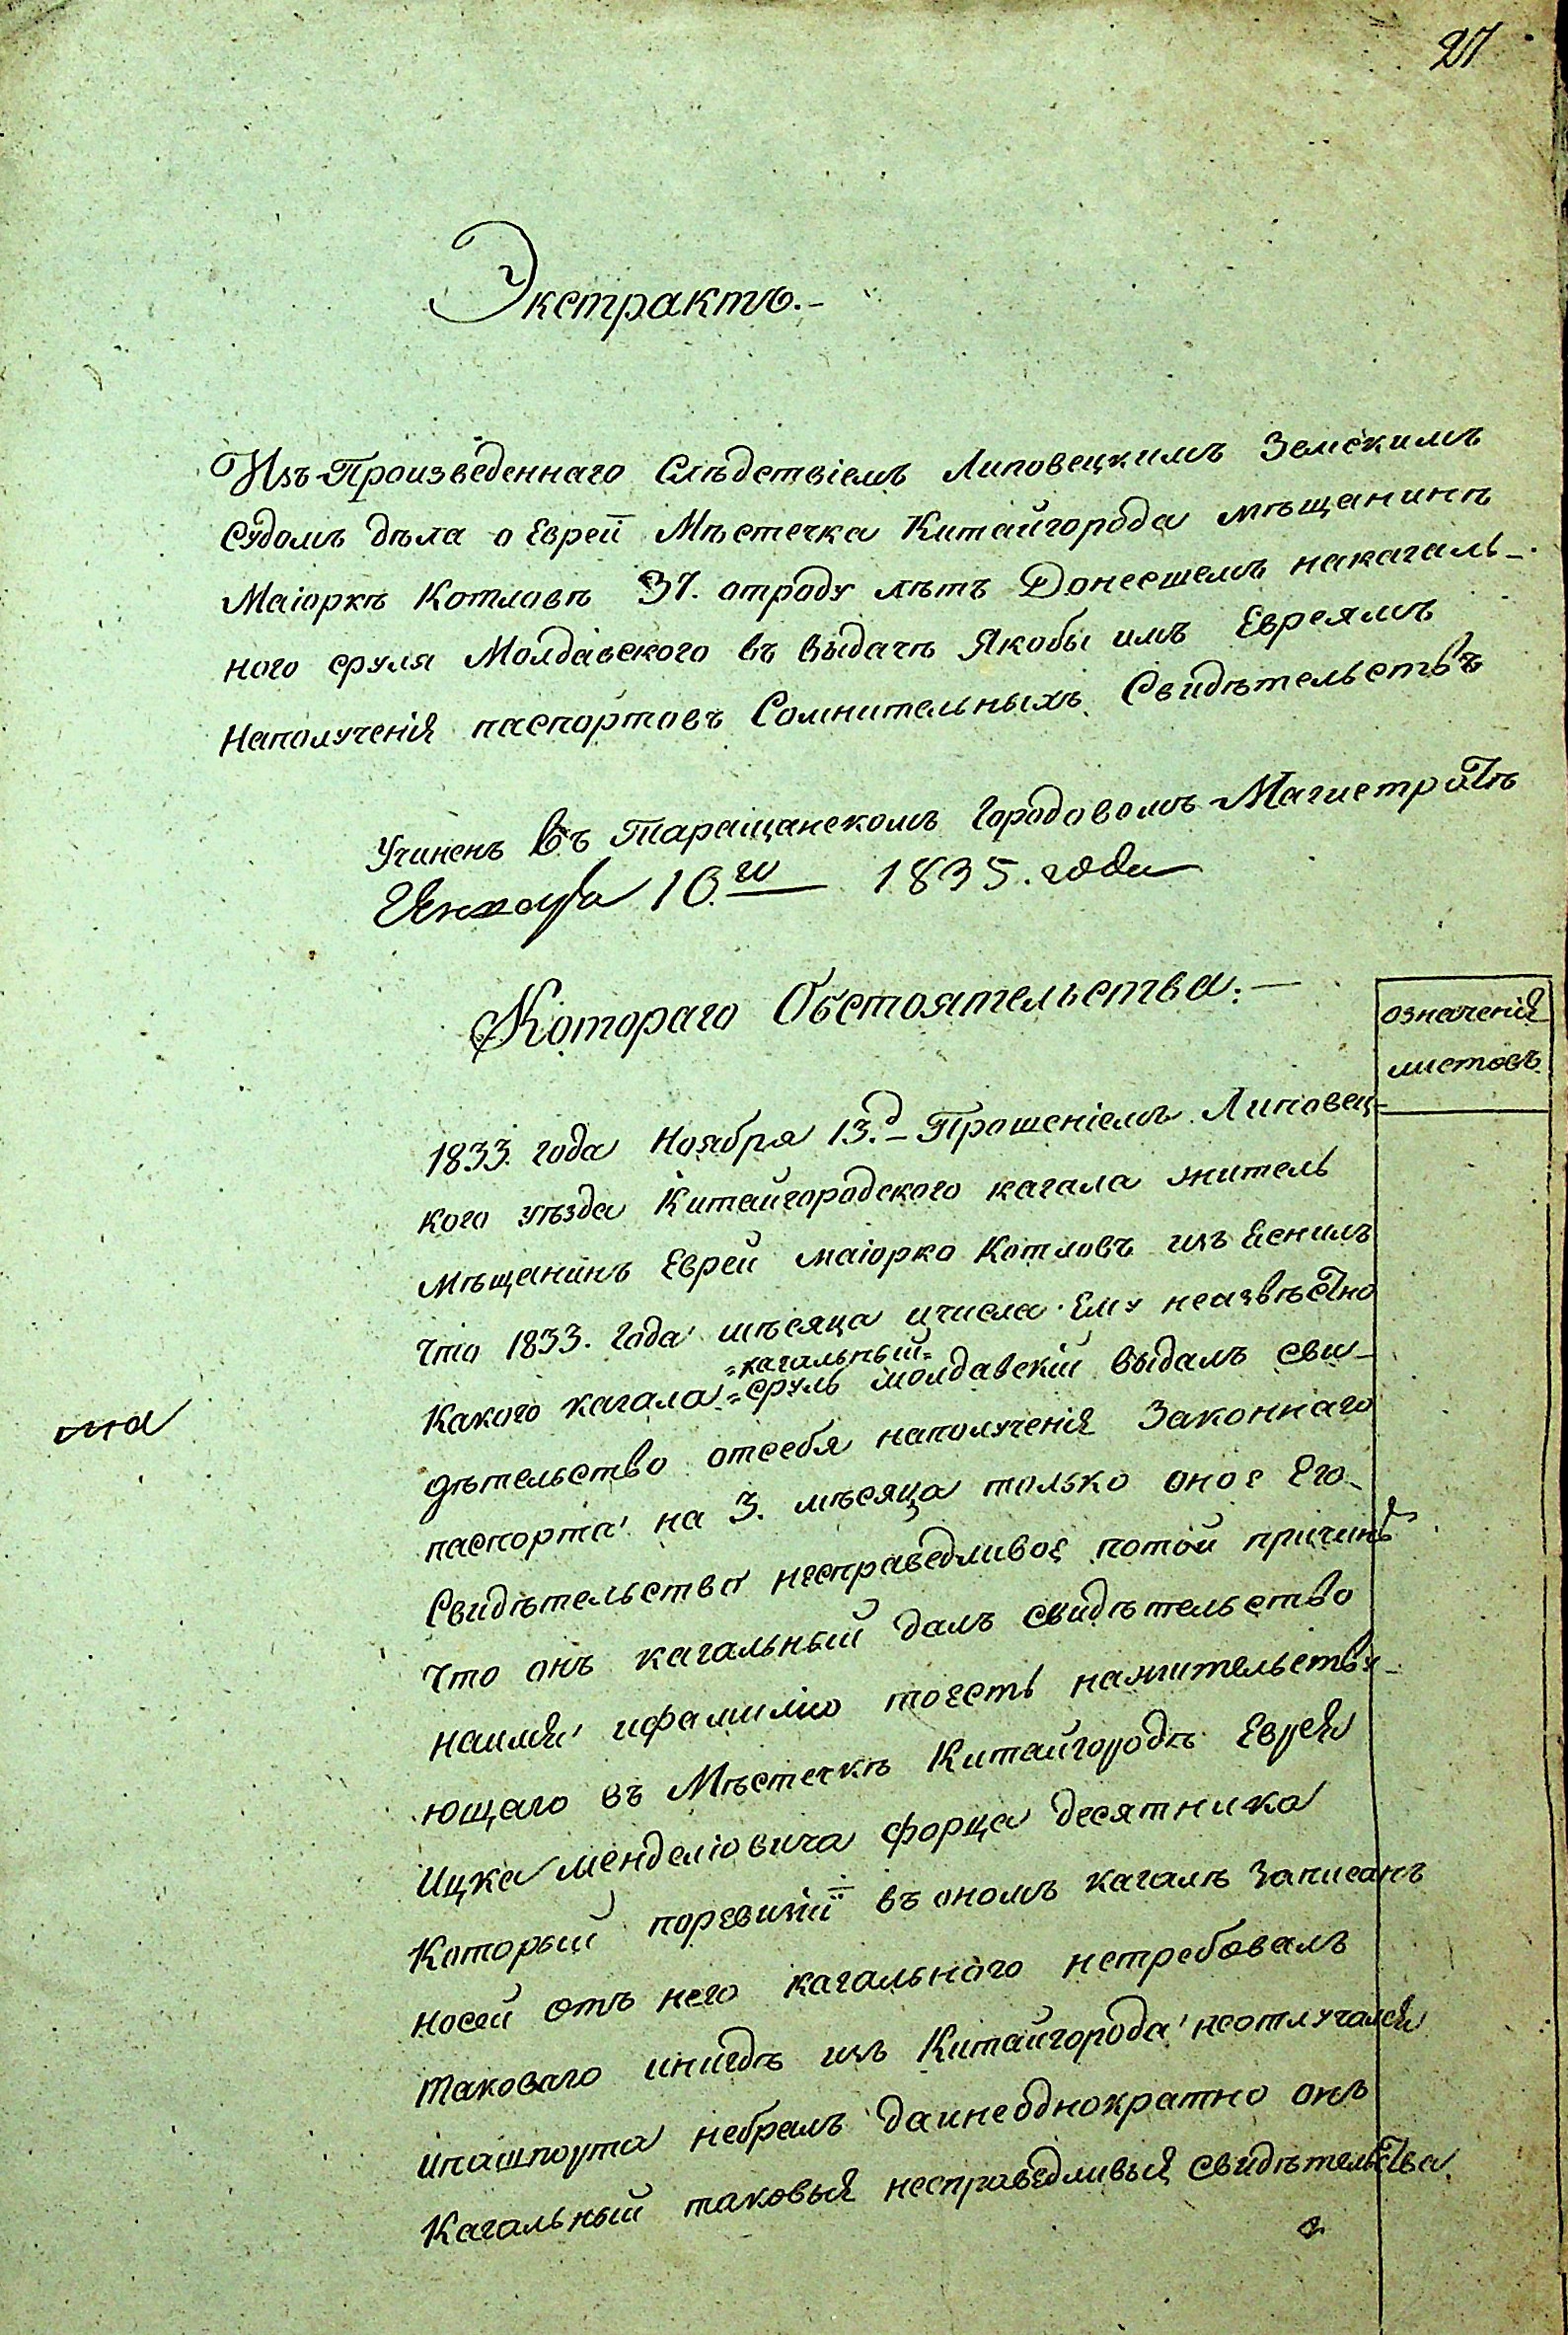 27
Экстрактъ.-
Изъ Произвѣденнаго Слѣдствіемъ Липовецкимъ Земскимъ
судомъ дѣла о Евреи Мѣстечка Китайгорода мѣщанинѣ
Маіоркѣ Котловѣ 37. отроду лѣтъ Донесшемъ накагаль-
ного сруля Молдавского въ выдачѣ Якобы имъ Евреямъ
Наполученія паспортовъ Сомнительныхъ Свидѣтельствъ
Учиненъ Въ Таращанскомъ Городовомъ Магистратѣ
Генваря 10.го 1835. года
Котораго Обстоятельства:-
означенія
листовъ
1833. года Ноября 13.д - Прошеніемъ Липовец-
кого уѣзда Китайгородского кагала житель
Мѣщанинъ Еврей маіорко Котловъ изъ Еснилъ
Что 1833. Года мѣсяца ичисла Ему неизвѣстно
=кагальный=
Какого кагала = сруль молдавскій выдалъ сви-
ма
дѣтельство отсебя наполученія Законнаго
паспорта на 3. мѣсяца только оное Его
Свидѣтельства несправедливое потой причинѣ
Что онъ кагальный далъ свидѣтельство
наимя ифамилію тоесть нажительству-
ющаго въ Мѣстечкѣ Китайгородѣ Еврея
Ицка менделіовича форца десятника
Который поревизіи въ ономъ кагалѣ Записанъ
носей отъ него кагального нетребовалъ
таковаго инигдѣ изъ Китайгорода неотлучался
ипашпорта небралъ даинеоднократно онъ
Кагальный таковыя несправедливыя свидѣтельства